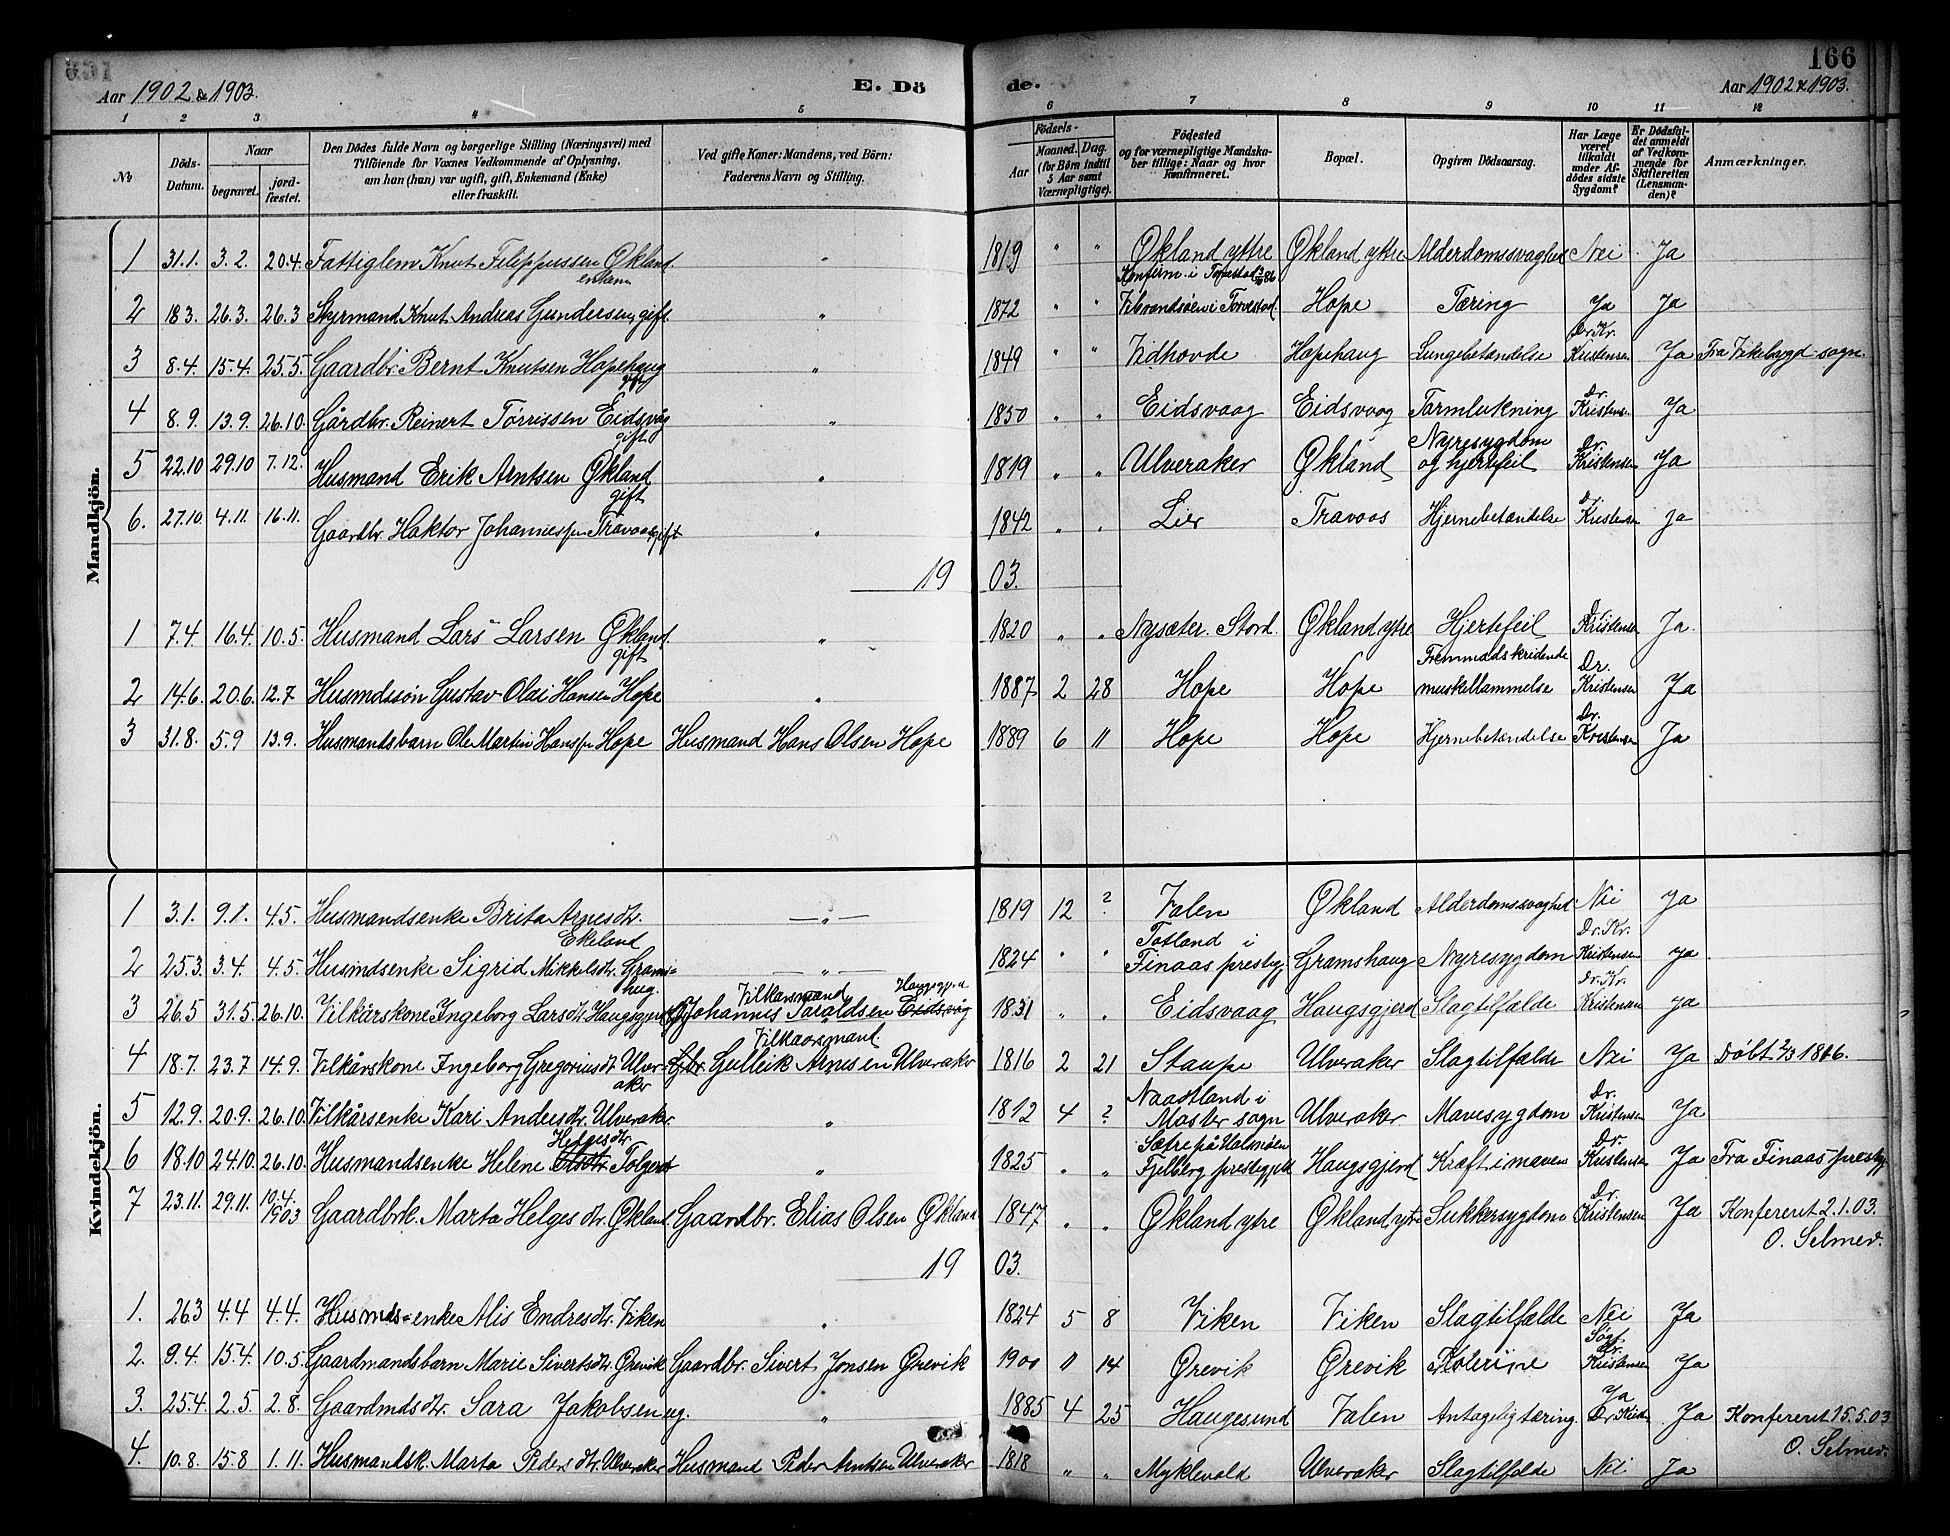 Aar 1902 & 1903. E. Dö de. 166
Aar 1902 & 1903.
1 2 3 4 5 6 7 8 9 10 11 12
No Döds-Datum. Naar begravet. jord-fæstet. Den Dödes fulde Navn og borgerlige Stilling (Næringsvei) med Tilföiende for Voxnes Vedkommende af Oplysning, om han (hun) var ugift, gift, Enkemand (Enke) eller fraskilt. Ved gifte Koner: Mandens, ved Börn: Faderens Navn og Stilling. Födsels- Aar Maaned. Dag. (for Börn indtil 5 Aar samt Værnepligtige). Födested og for værnepligtige Mandskaber tillige: Naar og hvor konfirmeret. Bopæl. Opgiven Dödsaarsag. Har Læge været tilkaldt under Afdödes sidste Sygdom? Er Dödsfaldet anmeldt af Vedkommende for Skifteretten (Lensmanden)? Anmærkninger.
Mandkjön.
1 31.1. 3.2. 20.4. Fattiglem Knut Filippussen Økland enkem " 1819 " " Økland yttre Økland yttre Alderdomssvaghed Nei Ja
2 18.3. 26.3. 26.3 Styrmand Knut Andreas Gundersen, gift. " 1872 " " Konfirm. i Torvestad Vibrandsøen i Torvestad. Hope Tæring Ja Ja
3 8.4. 15.4. 25.5. Gaardbr. Bernt Knutsen Hopehaug gift " 1849 " " Vidhovde Hopehaug Lungebetændelse Dr. Kr. Kristensen Ja Fra Vikebygd sogn.
4 8.9. 13.9. 26.10. Gårdbr. Reinert Tørrissen Eidsvåg gift " 1850 " " Eidsvaag Eidsvaag Tarmlukning Dr. Kristens. Ja
5 22.10 29.10 7.12. Husmand Erik Arntsen Økland gift " 1819 " " Ulveraker Økland Nyresygdom og hjertefeil Dr. Kristensen Ja
6. 27.10. 4.11. 16.11. Gaardbr Haktor Johannessen Travaas gift " 1842 " " Lier Travoos Hjernebetændelse Dr. Kristensen ja
1903.
1 7.4 16.4. 10.5. Husmand Lars Larsen Økland. gift " 1820 " " Nysæter. Stord. Økland ytre Hjertefeil Dr. Kristensen Ja.
2 14.6. 20.6. 12.7 Husmdssön Gustav Olai Hansen Hope " 1887 2 28 Hope Hope Fremmadskridende muskellammelse Dr. Kristensen Ja
3 31.8. 5.9 13.9. Husmandsbarn Ole Martin Hanssen Hope Husmand Hans Olsen Hope 1889 6 11 Hope Hope Hjernebetændelse Dr. Kristensen Ja
Kvindekjön.
1 3.1. 9.1. 4.5. Husmandsenke Brita Arnesdtr. Ekeland — " — 1819 12 ? Valen Økland Alderdomssvaghed Nei Ja
2 25.3. 3.4. 4.5. Husmdsenke Sigrid Mikkelsdtr. Grams-haug. — " — 1824 " " Totland i Finaas prestegj. Gramshaug Nyresygdom Dr. Kr. Kristensen ja
3 26.5 31.5. 26.10. Vilkårskone Ingeborg Larsdtr. Haugsgjerd Vilkaarsmand Johannes Taraldsen Eidsvåg 1831 " " Eidsvaag Haugsgjerd Slagtilfælde Dr. Kr. Kristensen ja
4 18.7. 23.7 14.9. Vilkårskone Ingeborg Gregoriusdt Ulver-aker Vilkaarsmand. Gbr. Gulleik Arnesen Ulveraker 1816 2 21 Staupe Ulveraker Slagtilfælde Nei Ja Døbt 2/3 1816.
5 12.9. 20.9. 26.10. Vilkårsenke Kari Andersdtr. Ulveraker. " 1812 4 ? Naadtland i Moster sogn Ulveraker Mavesygdom Dr. Kristensen Ja
6 18.10 24.10. 26.10. Husmandsenke Helene Helgesdtr. " 1825 " " Sætre på Halsnöen Fjelberg prestegjeld Haugsgjerd Kræft i maven Dr. Kristensen Ja Fra Finaas prestegj
7 23.11. 29.11. 10.4. 1903 Gaardbrk. Marta Helgesdtr. Økland. Gaardbr. Elias Olsen Økland 1847 " " Økland ytre Økland ytre Sukkersygdom Dr. Kristensen Ja Konfereret 2.1.03.
O. Selmer.
1903.
1. 26.3 4.4 4.4. Husmds-enke Alis Endresdtr. Viken " 1824 5 8 Viken Viken Slagtilfælde Nei Ja
2. 9.4. 15.4. 10.5. Gaardmandsbarn Marie Sivertsdtr. Ørevik Gaardbr. Sivert Jonsen Ørevik 1900 11 14 Ørevik Ørevik Søgt Dr. Kristensen Ja
3. 25.4. 2.5. 2.8. Gaardmdsdtr. Sara Jakobsen ug. " 1885 4 25 Haugesund Valen Antagelig tæring. Ja Dr Krist. Ja Konfereret 15.5.03
O. Selmer.
4. 10.8. 15.8 1.11. Husmandsk. Marta Pedersdtr. Ulveraker Husmand Peder Arntsen Ulveraker 1818 " " Myklevold Ulveraker Slagtilfælde Nei Ja